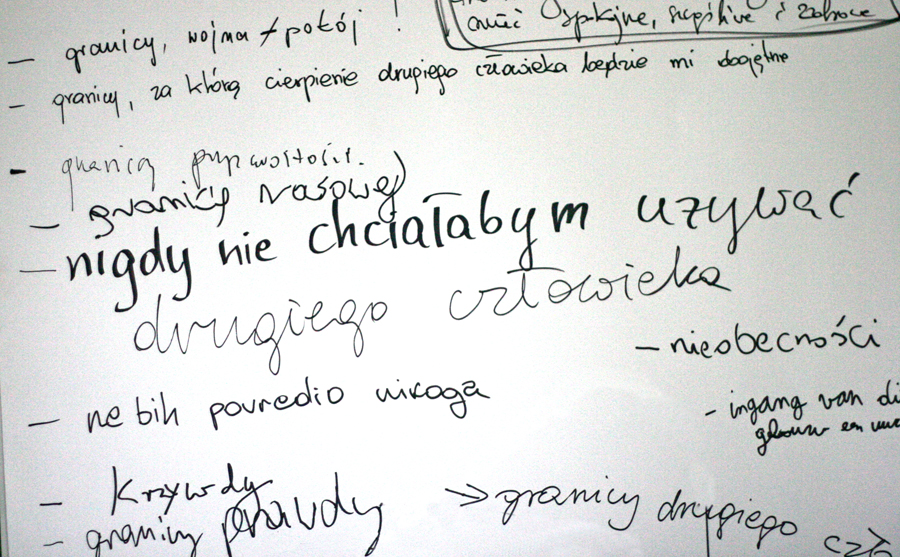 czuć spokojne, szczęśliwe i zdrowe
– granicy, wojna / pokój !
– granicy, za którą cierpienie drugiego człowieka będzie mi obojętne
– granicą
– granicy rasowej
– nigdy nie chciałabym używać
drugiego człowieka
– nieobecności
– ne bih povredio nikoga
– ingang van di
– Krzywdy
– granicy prawdy
→ granicy drugiego
czło